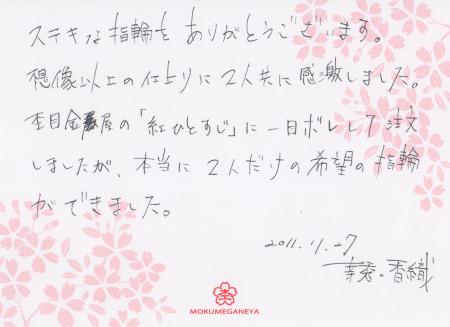 ステキな指輪をありがとうございます。
想像以上の仕上りに2人共に感激しました。
杢目金屋の「紅ひとすじ」に一目ボレして注文
しましたが、本当に2人だけの希望の指輪
ができました。
2011.11.27
幸秀・香織
MOKUMEGANEYA